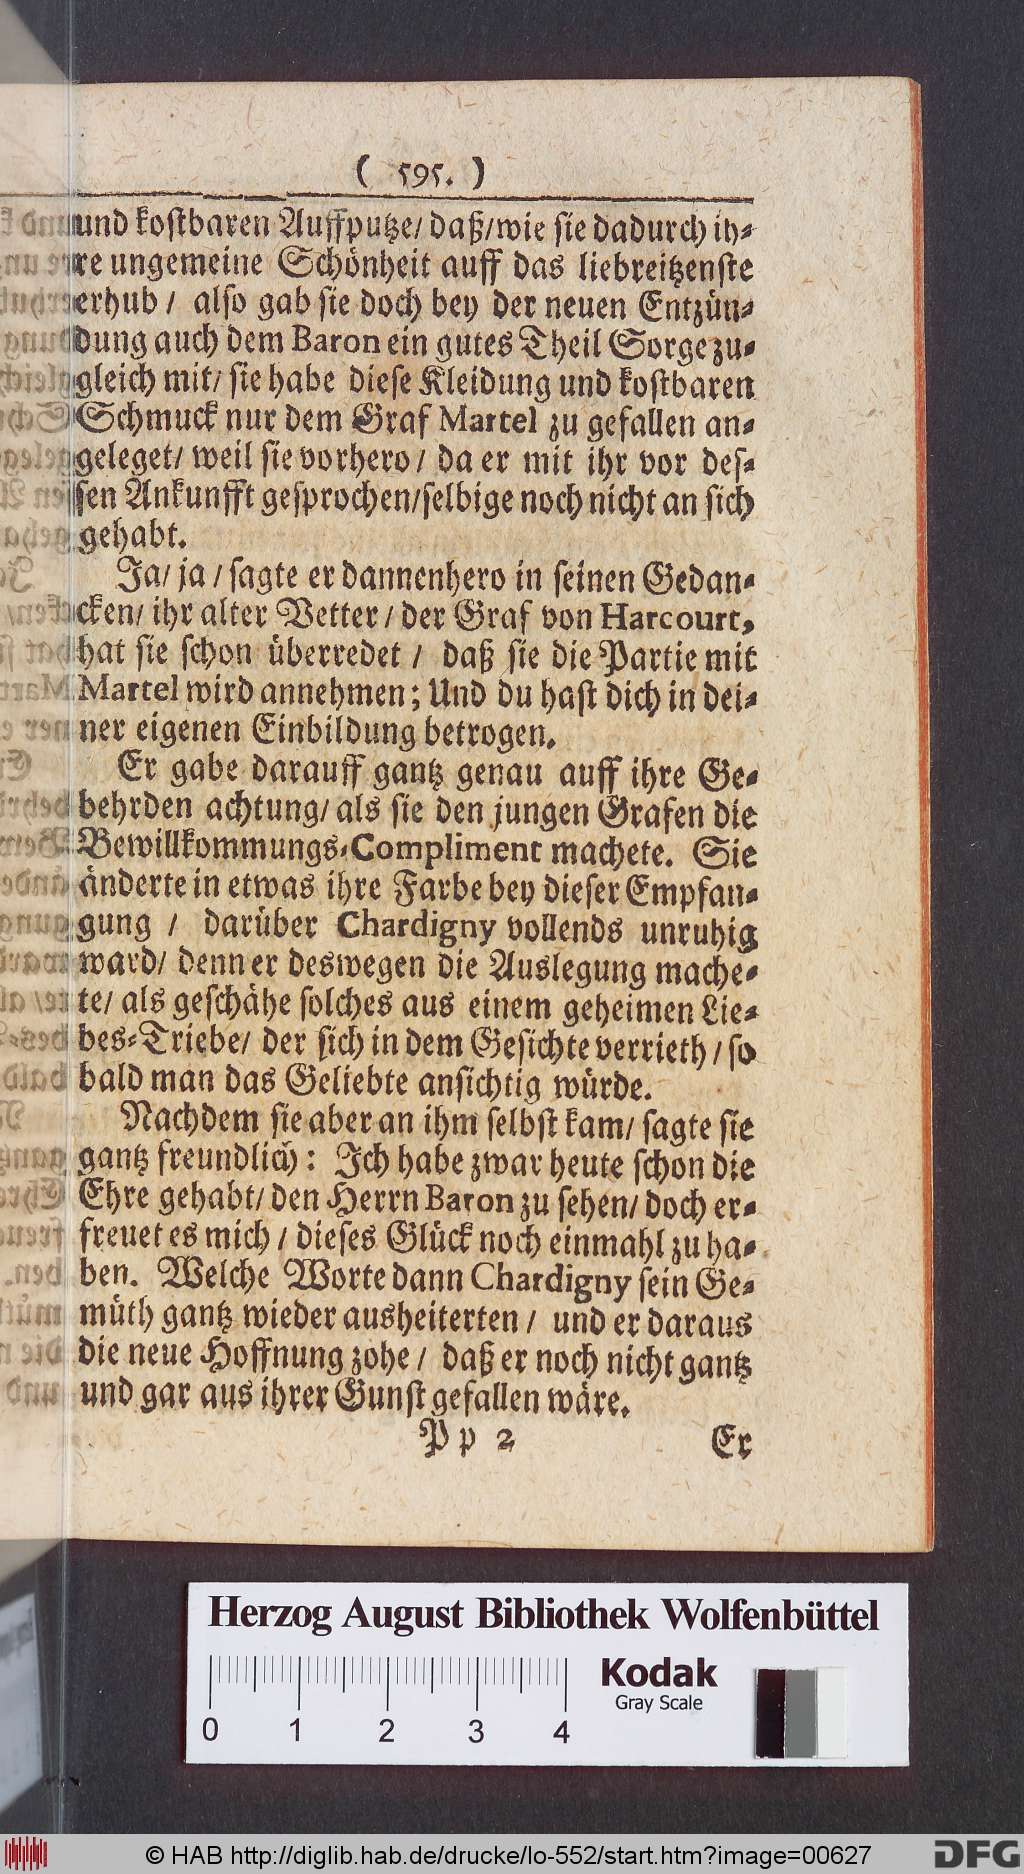 ( 595. )
und kostbaren Auffputze/ daß/wie sie dadurch ih-
re ungemeine Schönheit auff das liebreitzenste
erhub / also gab sie doch bey der neuen Entzün-
dung auch dem Baron ein gutes Theil Sorge zu-
gleich mit/ sie habe diese Kleidung und kostbaren
Schmuck nur dem Graf Martel zu gefallen an-
geleget/ weil sie vorhero / da er mit ihr vor des-
sen Ankunfft gesprochen/selbige noch nicht an sich
gehabt.
Ja/ ja / sagte er dannenhero in seinen Gedan-
cken/ ihr alter Vetter / der Graf von Harcourt,
hat sie schon überredet / daß sie die Partie mit
Martel wird annehmen; Und du hast dich in dei-
ner eigenen Einbildung betrogen.
Er gabe darauff gantz genau auff ihre Ge-
behrden achtung/ als sie den jungen Grafen die
Bewillkommungs-Compliment machete. Sie
änderte in etwas ihre Farbe bey dieser Empfan-
gung / darüber Chardigny vollends unruhig
ward/ denn er deswegen die Auslegung mache-
te/ als geschähe solches aus einem geheimen Lie-
bes-Triebe/ der sich in dem Gesichte verrieth / so
bald man das Geliebte ansichtig würde.
Nachdem sie aber an ihm selbst kam/ sagte sie
gantz freundlich: Ich habe zwar heute schon die
Ehre gehabt/ den Herrn Baron zu sehen/ doch er-
freuet es mich / dieses Glück noch einmahl zu ha-
ben. Welche Worte dann Chardigny sein Ge-
müth gantz wieder ausheiterten / und er daraus
die neue Hoffnung zohe / daß er noch nicht gantz
und gar aus ihrer Gunst gefallen wäre.
Pp 2 Er
Herzog August Bibliothek Wolfenbüttel
Kodak
Gray Scale
0 1 2 3 4
© HAB http://diglib.hab.de/drucke/lo-552/start.htm?image=00627
DFG